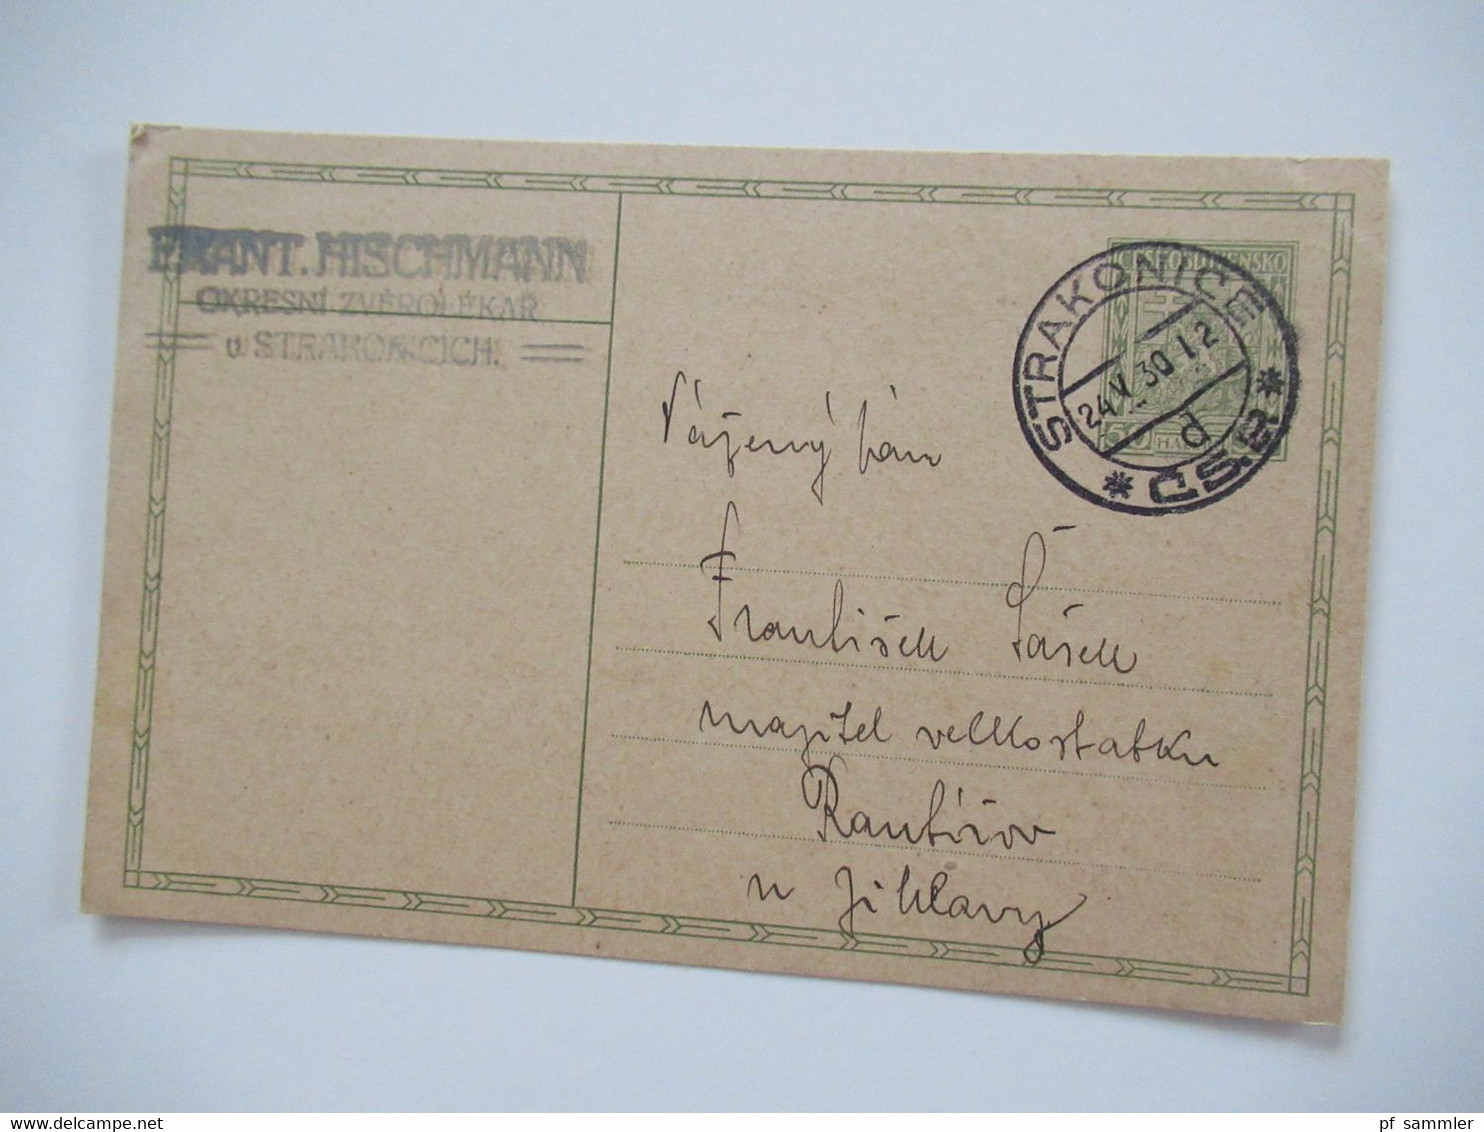 FRANT. HISCHMANN
OKRESNÍ ZVĚROLÉKAŘ
v STRAKONICÍCH.
ČESKOSLOVENSKO
50 HAL
STRAKONICE
24.V.30.12
d
* Č.S.R. *
Vážený pán
František Šášek
majitel velkostatku
Rantířov
u Jihlavy
www.delcampe.net
pf sammler